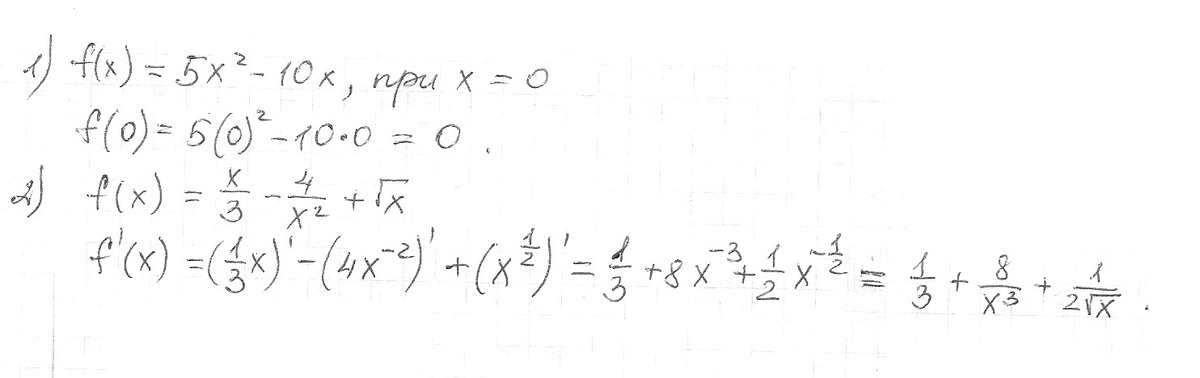 1) f(x) = 5x² - 10x, при x = 0
f(0) = 5(0)² - 10·0 = 0.
2) f(x) = x/3 - 4/x² + √x
f'(x) = (1/3 x)' - (4x⁻²)' + (x^(1/2))' = 1/3 + 8x⁻³ + 1/2 x^(-1/2) = 1/3 + 8/x³ + 1/(2√x).